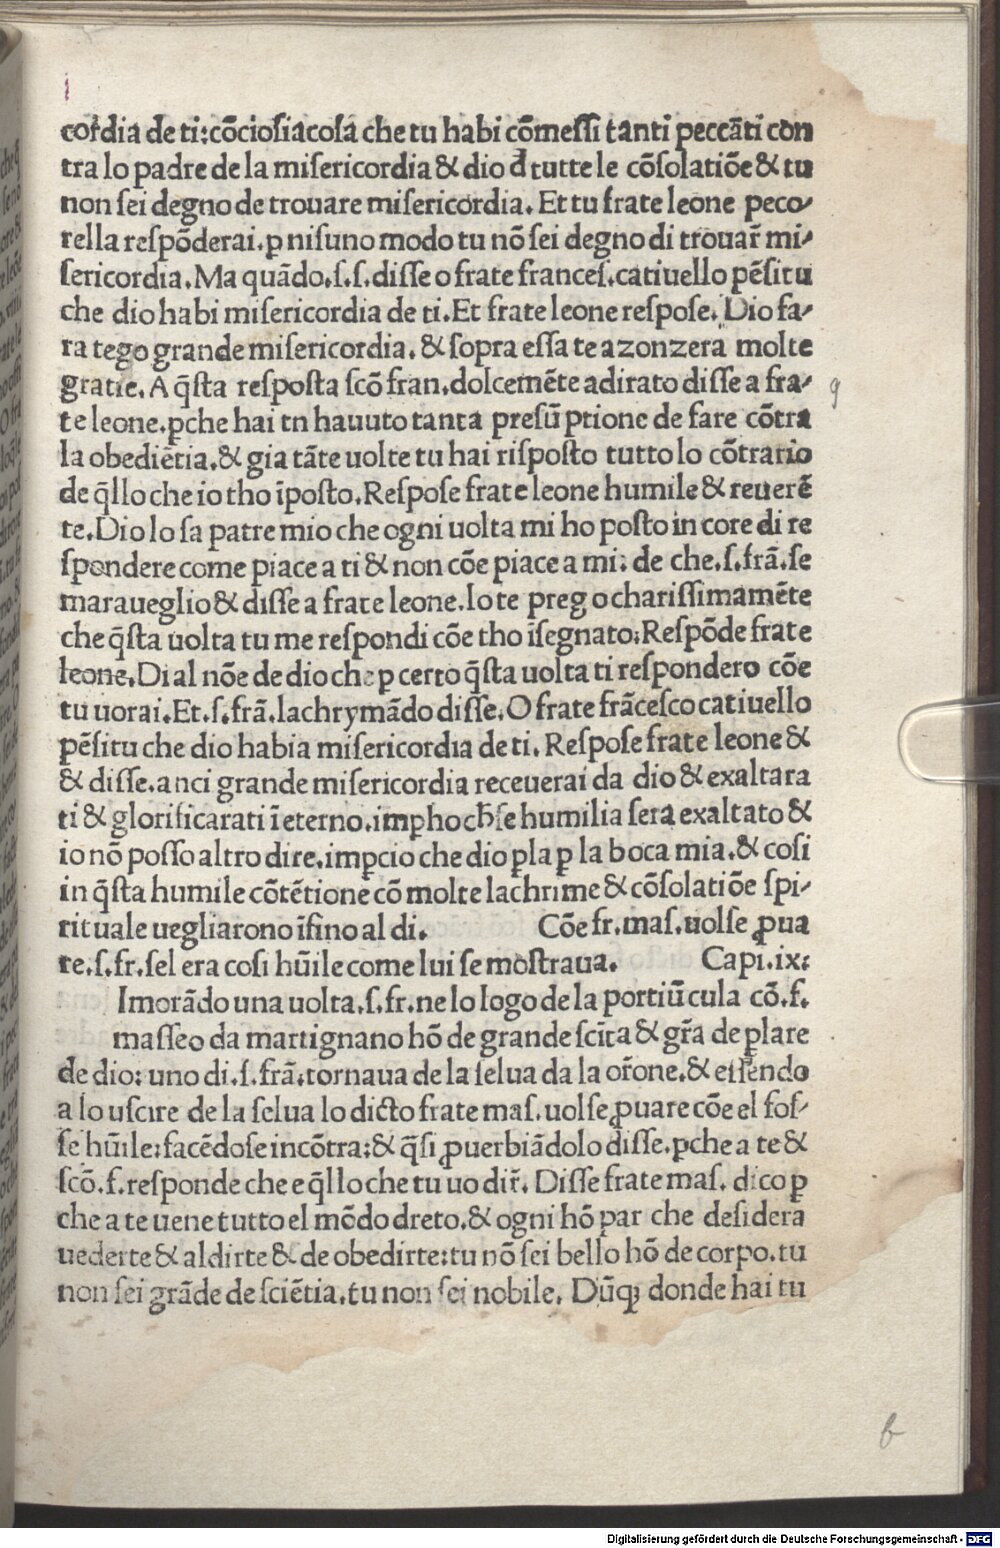 cordia de ti:cōciosiacosa che tu habi cōmessi tanti peccāti con
tra lo padre de la misericordia & dio đ tutte le cōsolatiōe & tu
non sei degno de trouare misericordia. Et tu frate leone peco⸗
rella respōderai.ꝑ nisuno modo tu nō sei degno di trouar̄ mi⸗
sericordia. Ma quādo.s.s.disse o frate frances.catiuello pēsi tu
che dio habi misericordia de ti.Et frate leone respose. Dio fa⸗
ra tego grande misericordia. & sopra essa te azonzera molte
gratie. A q̄sta resposta scō fran.dolcemēte adirato disse a fra⸗
te leone.ꝑche hai tn hauuto tanta presūptione de fare cōtra
la obediētia.& gia tāte uolte tu hai risposto tutto lo cōtrario
de q̄llo che io tho īposto. Respose frate leone humile & reuerē
te. Dio lo sa patre mio che ogni uolta mi ho posto in core di re
spondere come piace a ti & non cōe piace a mi: de che.s.frā.se
maraueglio & disse a frate leone. Io te prego charissimamēte
che q̄sta uolta tu me respondi cōe tho īsegnato: Respōde frate
leone. Di al nōe de dio che ꝑ certo q̄sta uolta ti respondero cōe
tu uorai. Et.s.frā.lachrymādo disse. O frate frācesco catiuello
pēsi tu che dio habia misericordia de ti. Respose frate leone &
& disse.anci grande misericordia receuerai da dio & exaltara
ti & glorificarati ī eterno.imꝑho ch̄ se humilia sera exaltato &
io nō posso altro dire.imꝑcio che dio ꝑla ꝑ la boca mia.& cosi
in q̄sta humile cōtētione cō molte lachrime & cōsolatiōe spi⸗
rituale uegliarono īfino al di. Cōe fr.mas.uolse ꝓua
re.s.fr.sel era cosi hūile come lui se mostraua. Capi.ix:
Imorādo una uolta.s.fr.ne lo logo de la portiūcula cō.f.
masseo da martignano hō de grande scīta & gr̄a de ꝑlare
de dio: uno di.s.frā.tornaua de la selua da la or̄one.& essendo
a lo uscire de la selua lo dicto frate mas.uolse ꝓuare cōe el fos⸗
se hūile:facēdose incōtra:& q̄si ꝓuerbiādolo disse.ꝑche a te &
scō.f.responde che e q̄llo che tu uo dir̄. Disse frate mas. dico ꝑ
che a te uene tutto el mōdo dreto.& ogni hō par che desidera
uederte & aldirte & de obedirte:tu nō sei bello hō de corpo.tu
non sei grāde de sciētia.tu non sei nobile. Dūqꝫ donde hai tu
g
b
Digitalisierung gefördert durch die Deutsche Forschungsgemeinschaft - DFG